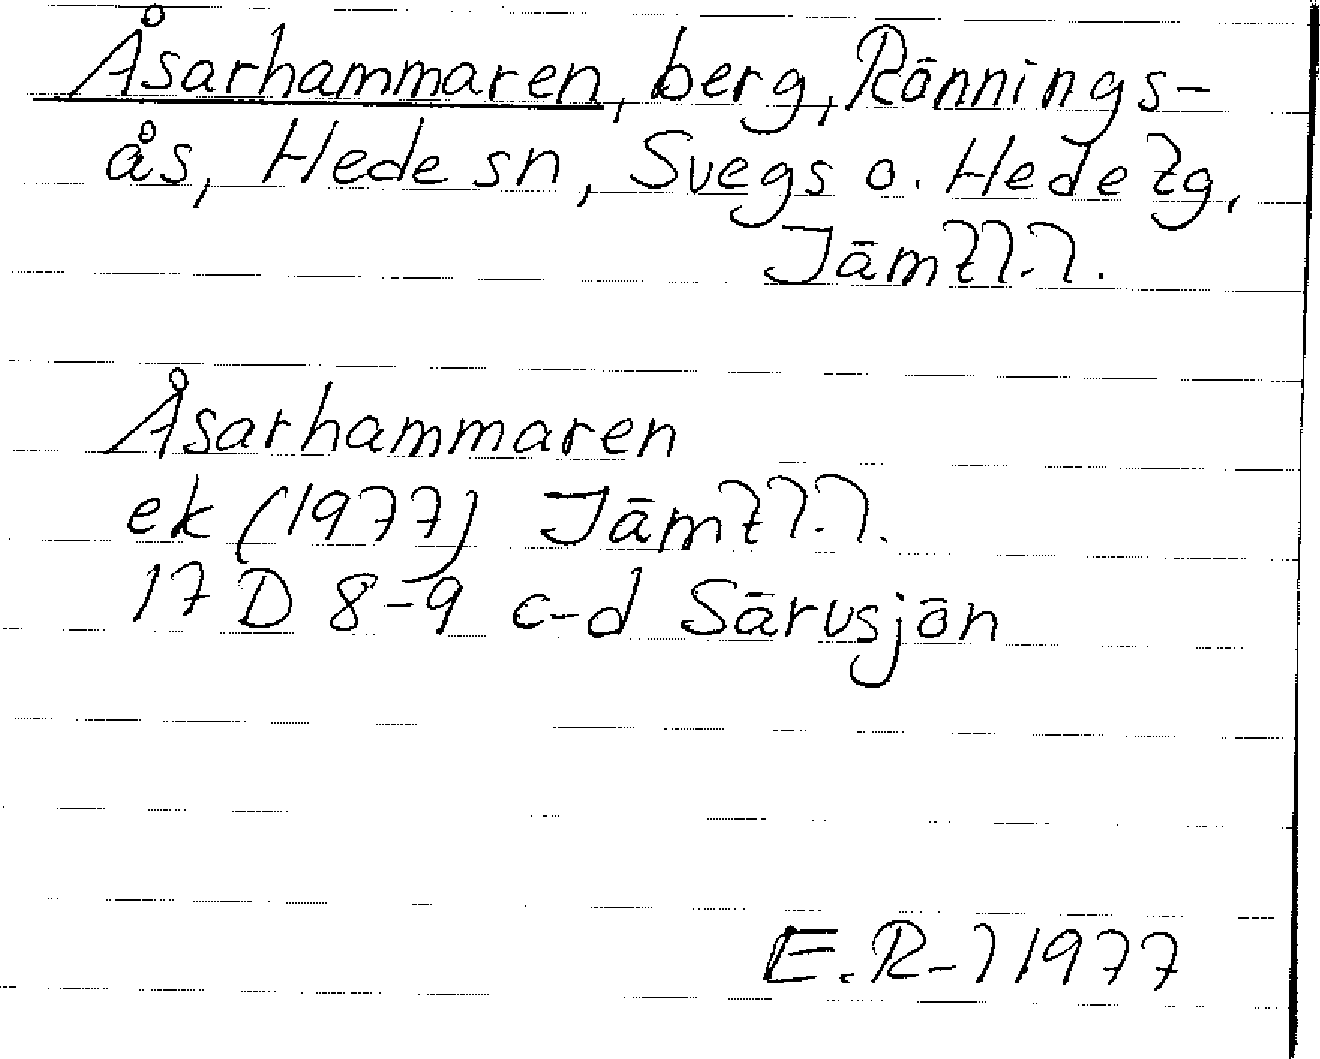 Åsarhammaren, berg, Rönnings-
ås, Hede sn, Svegs o. Hede tg,
Jämtl. l.
Åsarhammaren
ek (1977) Jämtl. l.
17 D 8-9 c-d Särvsjön
E. R-l 1977